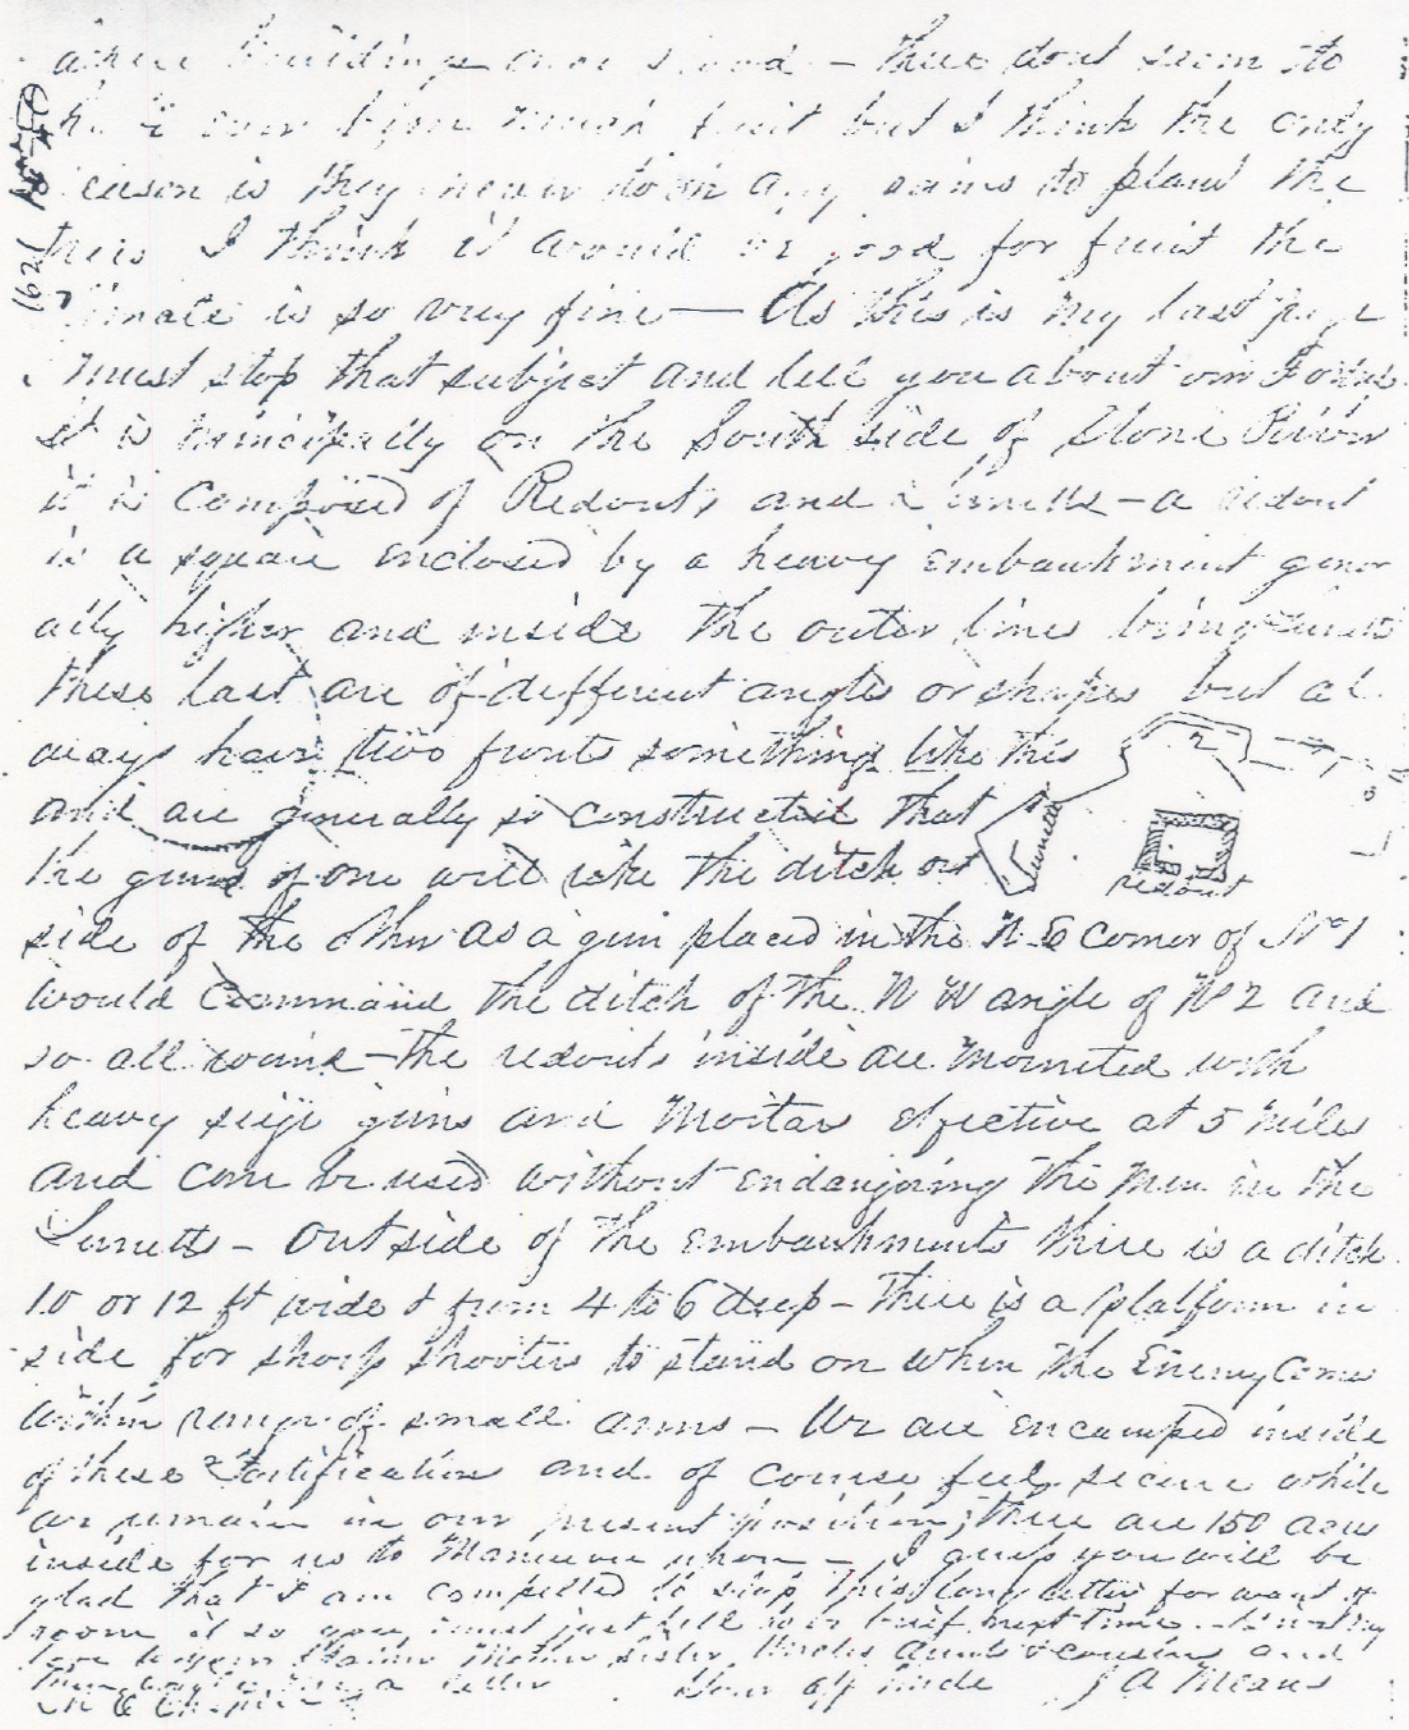 where buildings once stood - there dont seem to
ever been much fruit but I think the only
reason is they never to plant the
trees I think it would be good for fruit the
climate is so very fine — As this is my last page
must stop that subject and tell you about our Forts
it is principally on the South side of Stone River
it is composed of Redouts and Lunetts - a redout
is a square enclosed by a heavy embankment gener
ally higher and inside the outer lines being Lunetts
these last are of different angles or shapes but al
ways have two fronts something like this
2
and are generally so constructed that
Lunett
the guns of one will rake the ditch out
redout
side of the other as a gun placed in the N E corner of No 1
would command the ditch of the N W angle of No 2 and
so all round - the redouts inside are mounted with
heavy seige guns and Mortars efective at 5 miles
and can be used without endangering the men in the
Lunetts - outside of the embankments there is a ditch
10 or 12 ft wide & from 4 to 6 deep - There is a platform in
side for sharp shooters to stand on when the Enemy comes
within range of small arms - We are encamped inside
of these Fortifications and of course feel secure while
we remain in our present position, there are 150 acres
inside for us to Maneuver upon - I guess you will be
glad that I am compelled to stop this long letter for want of
room if so you must just tell me in brief next time
love to your Mother sister Uncles Aunts & cousins and
a letter Your aff J A Means